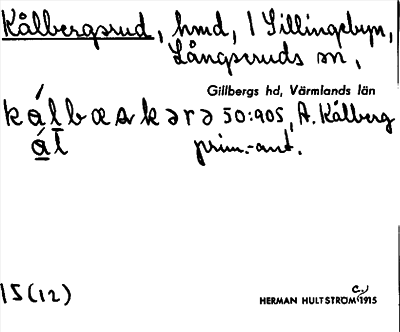 Kålbergsrud, hmd, / Sillingebyn,
Långseruds sn,
Gillbergs hd, Värmlands län
kálbæskərə 50:905, A. Kålberg
ál prim.-ant.
15(12)
HERMAN HULTSTRÖM c. 1915